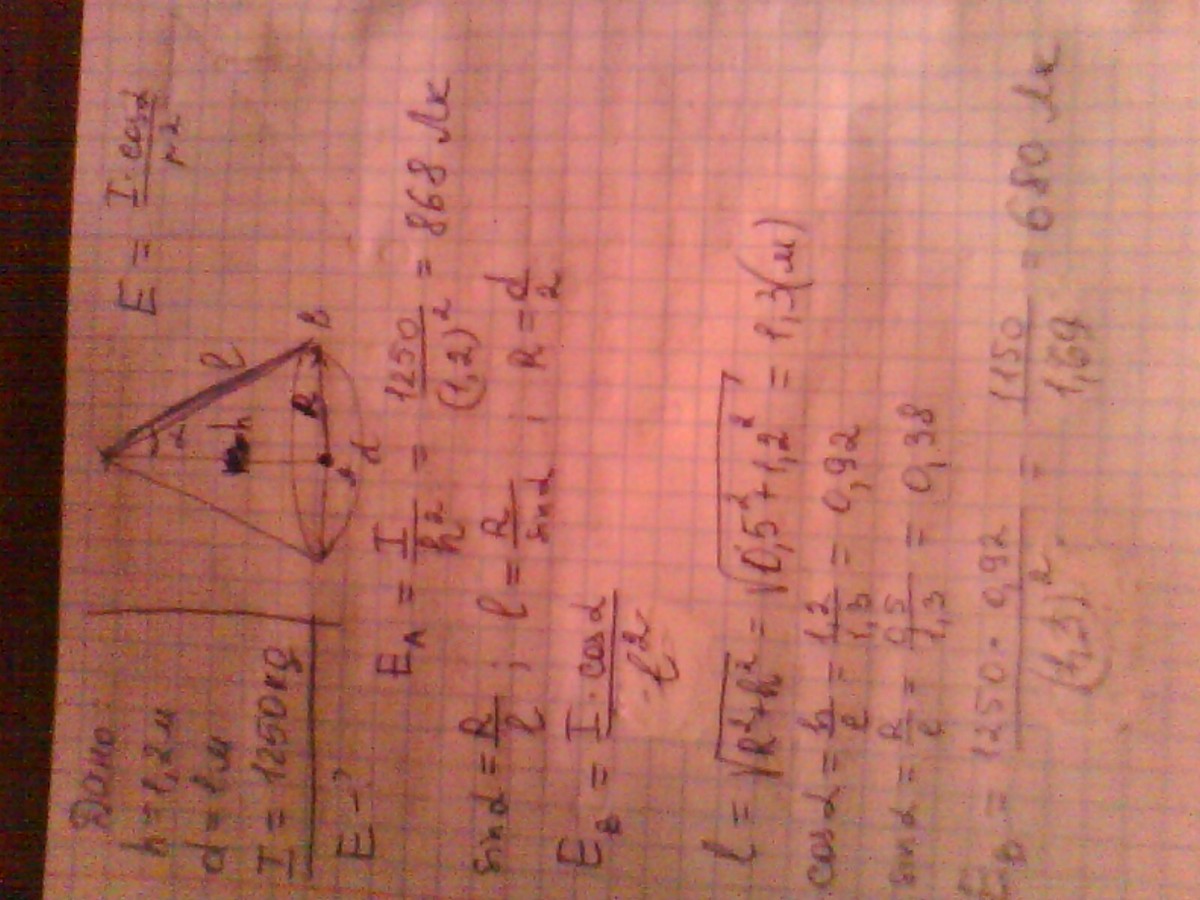 Дано:
h = 1,2 м
d = 1 м
I = 1250 кд
E - ?
E = I · cosα / r²
α
h
l
R
A
d
B
E_A = I / h² = 1250 / (1,2)² = 868 Лк
sinα = R / l ; l = R / sinα ; R = d / 2
E_B = I · cosα / l²
l = √(R² + h²) = √(0,5² + 1,2²) = 1,3 (м)
cosα = h / l = 1,2 / 1,3 = 0,92
sinα = R / l = 0,5 / 1,3 = 0,38
E_B = 1250 · 0,92 / (1,3)² = 1150 / 1,69 = 680 Лк